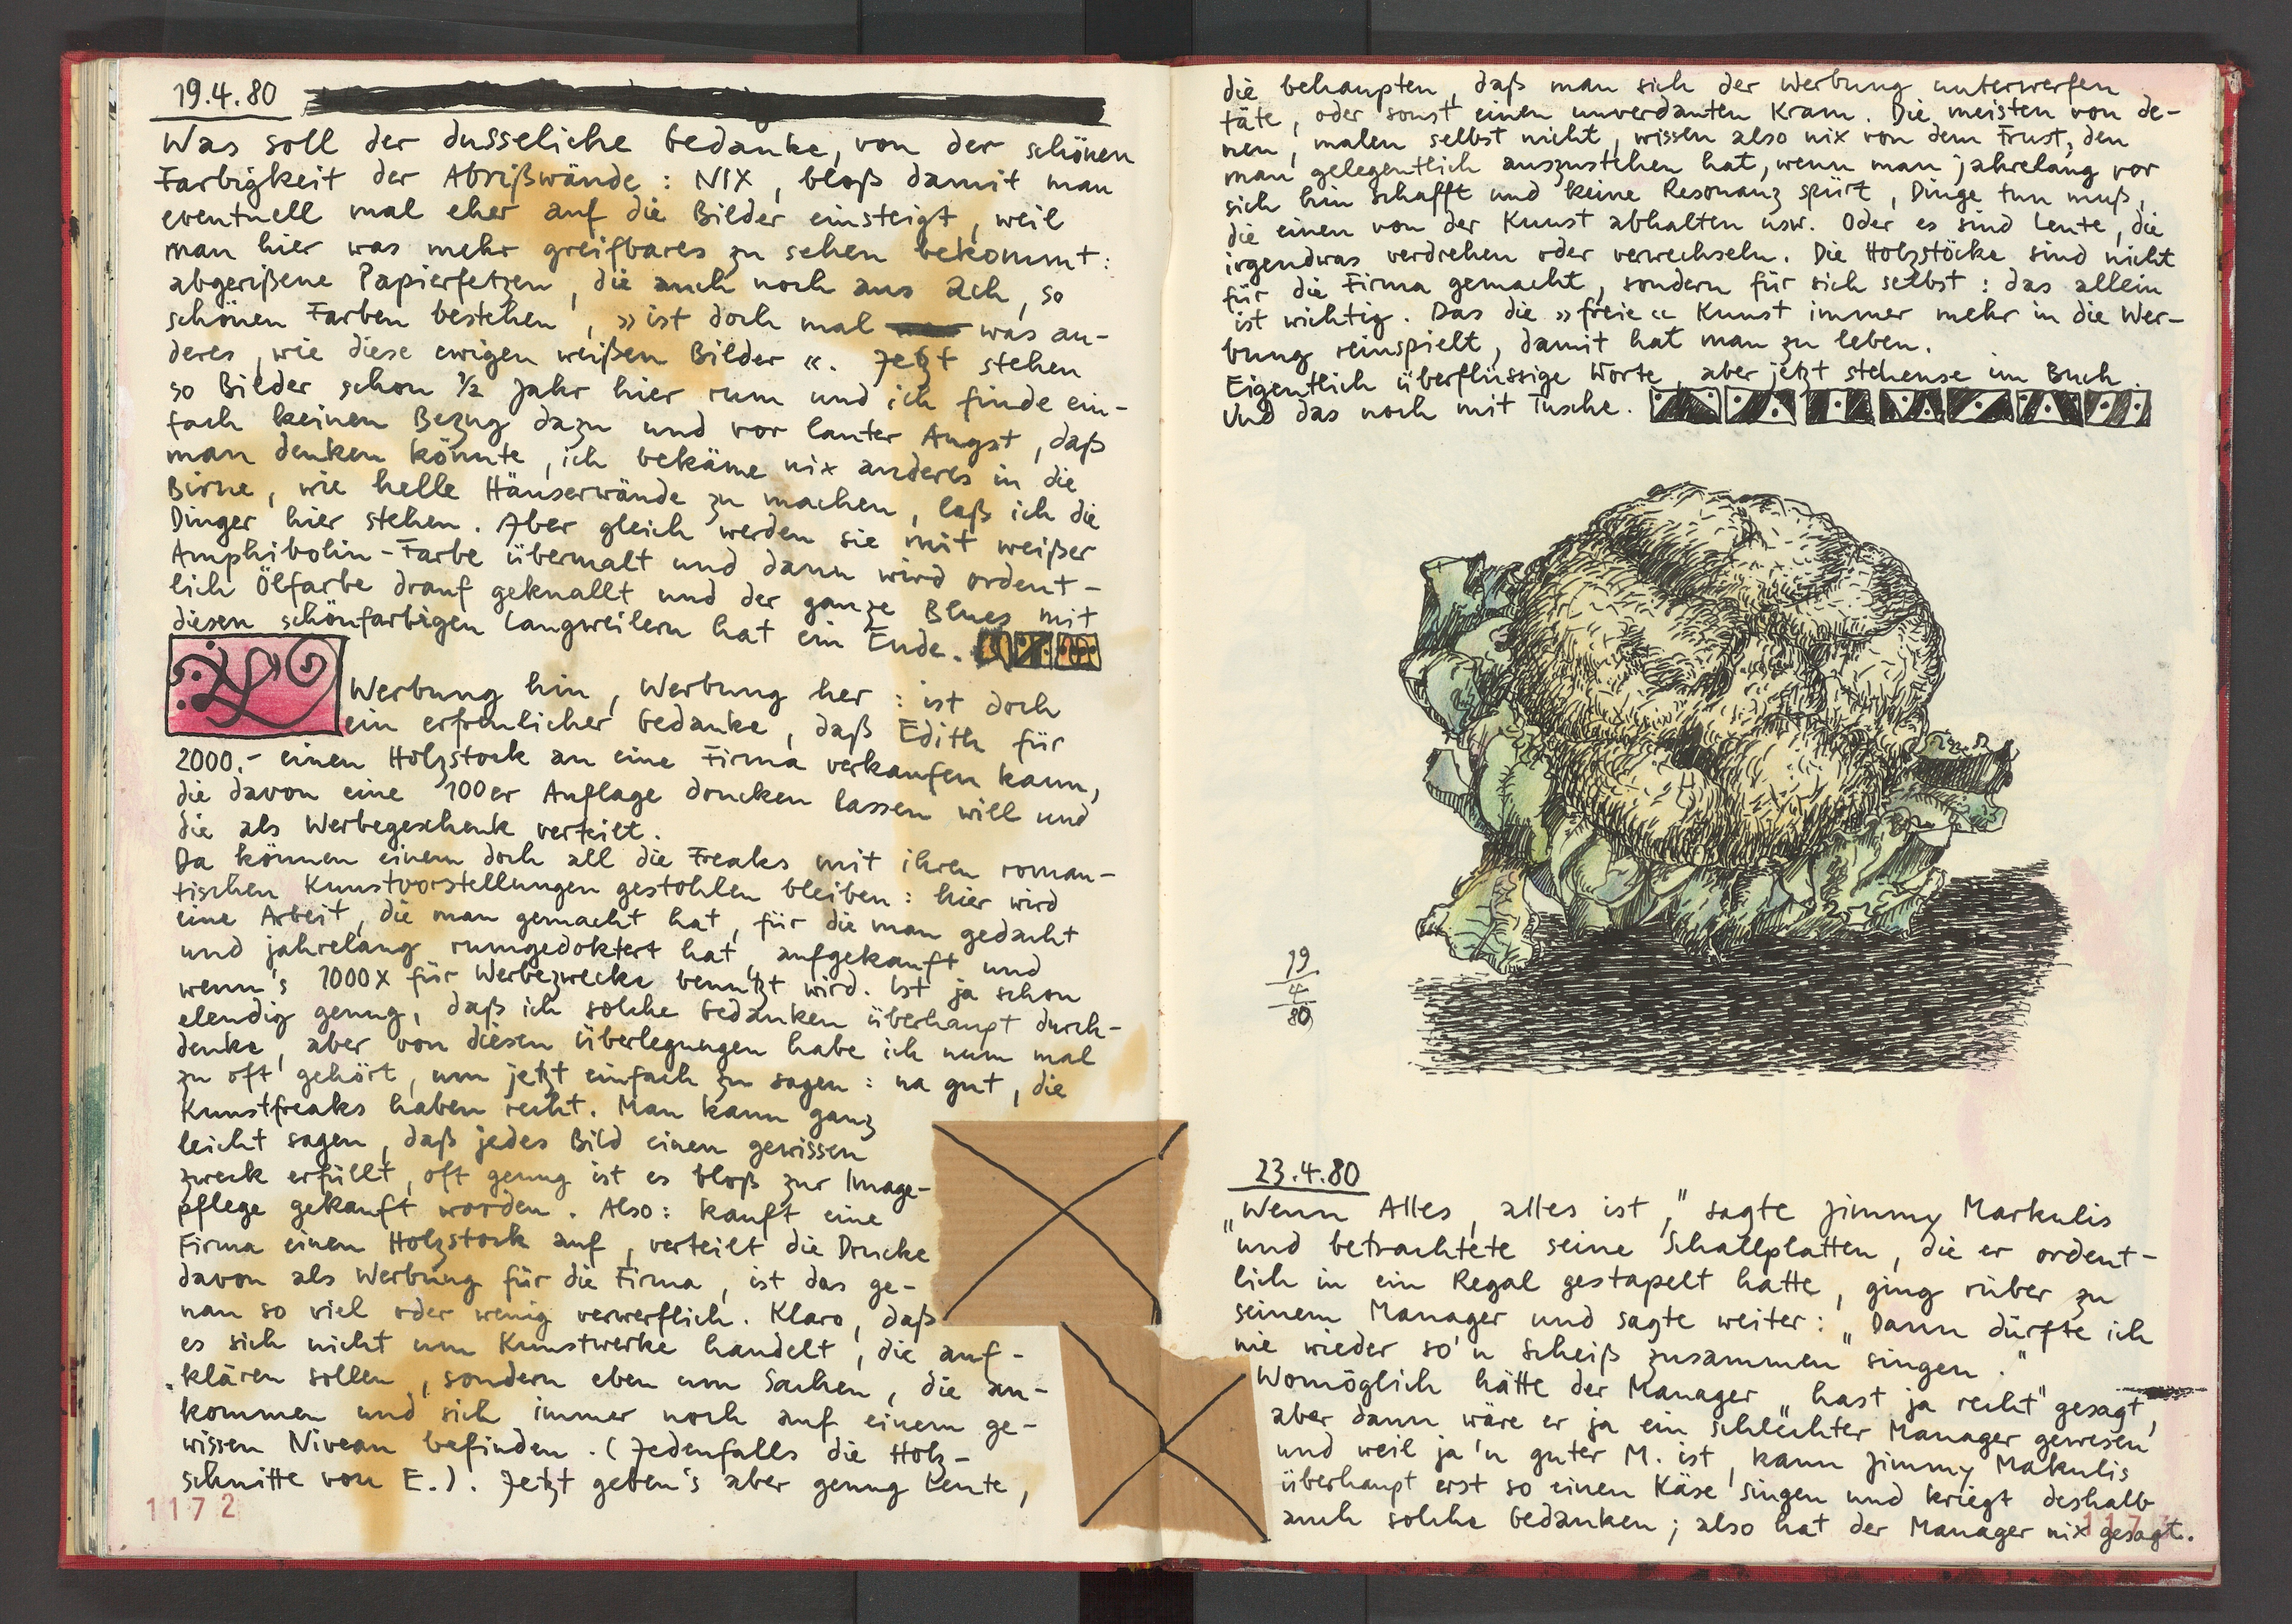 19.4.80
Was soll der dusseliche Gedanke, von der schönen
Farbigkeit der Abrißwände: NIX, bloß damit man
eventuell mal eher auf die Bilder einsteigt, weil
man hier was mehr greifbares zu sehen bekommt:
abgerißene Papierfetzen, die auch noch aus ach, so
schönen Farben bestehen, »ist doch mal was an-
deres, wie diese ewigen weißen Bilder«. Jetzt stehen
so Bilder schon 1/2 Jahr hier rum und ich finde ein-
fach keinen Bezug dazu und vor lauter Angst, daß
man denken könnte, ich bekäme nix anderes in die
Birne, wie helle Häuserwände zu machen, laß ich die
Dinger hier stehen. Aber gleich werden sie mit weißer
Amphibolin-Farbe übermalt und dann wird ordent-
lich Ölfarbe drauf geknallt und der ganze Blues mit
diesen schönfarbigen Langweilern hat ein Ende.
Werbung hin, Werbung her: ist doch
ein erfreulicher Gedanke, daß Edith für
2000.- einen Holzstock an eine Firma verkaufen kann,
die davon eine 100er Auflage drucken lassen will und
die als Werbegeschenk verteilt.
Da können einem doch all die Freaks mit ihren roman-
tischen Kunstvorstellungen gestohlen bleiben: hier wird
eine Arbeit, die man gemacht hat, für die man gedacht
und jahrelang rumgedoktert hat, aufgekauft und
wenn's 1000x für Werbezwecke benutzt wird. Ist ja schon
elendig genug, daß ich solche Gedanken überhaupt durch-
denke, aber von diesen Überlegungen habe ich nun mal
zu oft gehört, um jetzt einfach zu sagen: na gut, die
Kunstfreaks haben recht. Man kann ganz
leicht sagen, daß jedes Bild einen gewissen
Zweck erfüllt, oft genug ist es bloß zur Image-
pflege gekauft worden. Also: kauft eine
Firma einen Holzstock auf, verteilt die Drucke
davon als Werbung für die Firma, ist das ge-
nau so viel oder wenig verwerflich. Klaro, daß
es sich nicht um Kunstwerke handelt, die auf-
klären sollen, sondern eben um Sachen, die an-
kommen und sich immer noch auf einem ge-
wissen Niveau befinden. (Jedenfalls die Holz-
schnitte von E.). Jetzt geben's aber genug Leute,
1172
die behaupten, daß man sich der Werbung unterwerfen
täte, oder sonst einen unverdauten Kram. Die meisten von de-
nen, malen selbst nicht, wissen also nix von dem Frust, den
man gelegentlich auszustehen hat, wenn man jahrelang vor
sich hin schafft und keine Resonanz spürt, Dinge tun muß,
die einen von der Kunst abhalten usw. Oder es sind Leute, die
irgendwas verdrehen oder verwechseln. Die Holzstöcke sind nicht
für die Firma gemacht, sondern für sich selbst: das allein
ist wichtig. Das die »freie« Kunst immer mehr in die Wer-
bung reinspielt, damit hat man zu leben.
Eigentlich überflüssige Worte, aber jetzt stehense im Buch.
Und das noch mit Tusche.
19
4
80
23.4.80
„Wenn Alles, alles ist," sagte Jimmy Markulis
und betrachtete seine Schallplatten, die er ordent-
lich in ein Regal gestapelt hatte, ging rüber zu
seinem Manager und sagte weiter: „Dann dürfte ich
nie wieder so'n Scheiß zusammen singen."
Womöglich hätte der Manager „hast ja recht" gesagt,
aber dann wäre er ja ein schlechter Manager gewesen
und weil ja'n guter M. ist, kann Jimmy Makulis
überhaupt erst so einen Käse singen und kriegt deshalb
auch solche Gedanken; also hat der Manager nix gesagt.